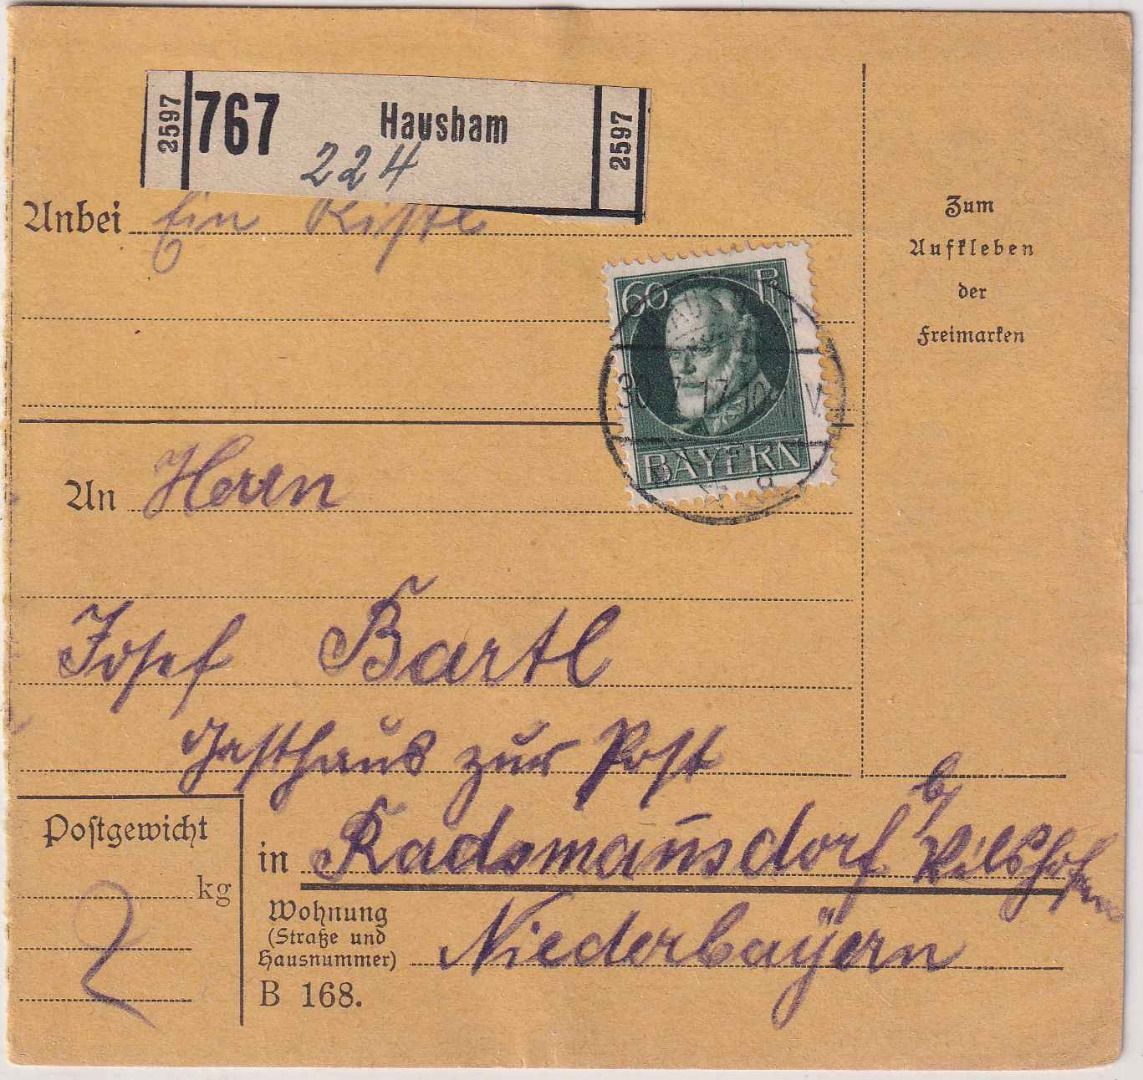 2597 767 Hausham 2597
224
Anbei Ein Kistl
Zum
Aufkleben
der
Freimarken
60 P
30 7 17 V
BAYERN
An Herrn
Josef Bartl
Gasthaus zur Post
in Radsmannsdorf b/ Vilshofen
Postgewicht
kg
2
Wohnung
(Straße und
Hausnummer) Niederbayern
B 168.